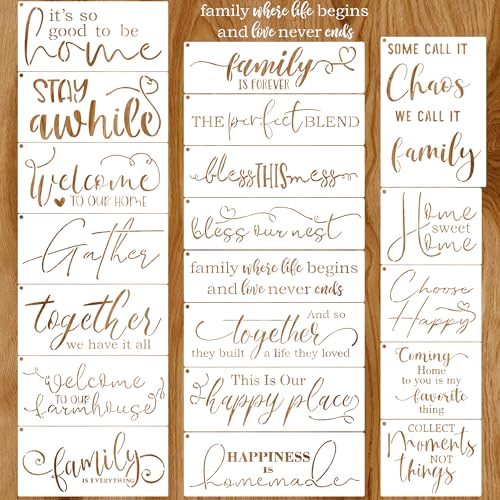 it's so
good to be
home
STAY
awhile
Welcome
TO OUR HOME
Gather
together
we have it all
Welcome
TO OUR
farmhouse
family
IS EVERYTHING
family where life begins
and love never ends
family
IS FOREVER
THE perfect BLEND
bless THIS mess
bless our nest
family where life begins
and love never ends
And so
together
they built a life they loved
This Is Our
happy place
HAPPINESS
IS
homemade
SOME CALL IT
Chaos
WE CALL IT
family
Home
sweet
Home
Choose
Happy
Coming
Home
to you is my
favorite
thing
COLLECT
Moments
NOT
THINGS